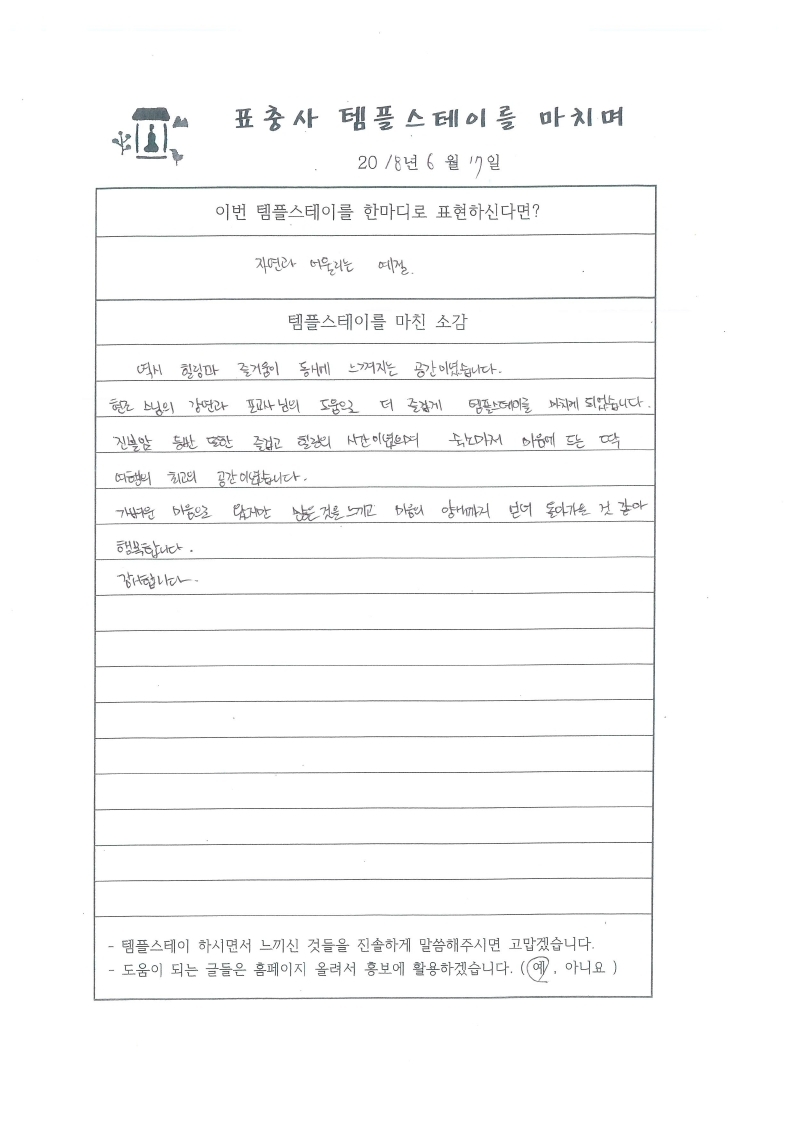 표충사 템플스테이를 마치며
2018년 6월 17일
이번 템플스테이를 한마디로 표현하신다면?
자연과 어울리는 예절.
템플스테이를 마친 소감
역시 힐링과 즐거움이 동시에 느껴지는 공간이었습니다.
현조 스님의 강연과 포교사님의 도움으로 더 즐겁게 템플스테이를 마치게 되었습니다.
진불암 등반 또한 즐겁고 힐링의 시간이었으며 숙소마저 마음에 드는 딱
여행의 최고의 공간이었습니다.
가벼운 마음으로 왔지만 많은 것을 느끼고 마음의 양식까지 얻어 돌아가는 것 같아
행복합니다.
감사합니다.
- 템플스테이 하시면서 느끼신 것들을 진솔하게 말씀해주시면 고맙겠습니다.
- 도움이 되는 글들은 홈페이지 올려서 홍보에 활용하겠습니다. ( 예 , 아니요 )